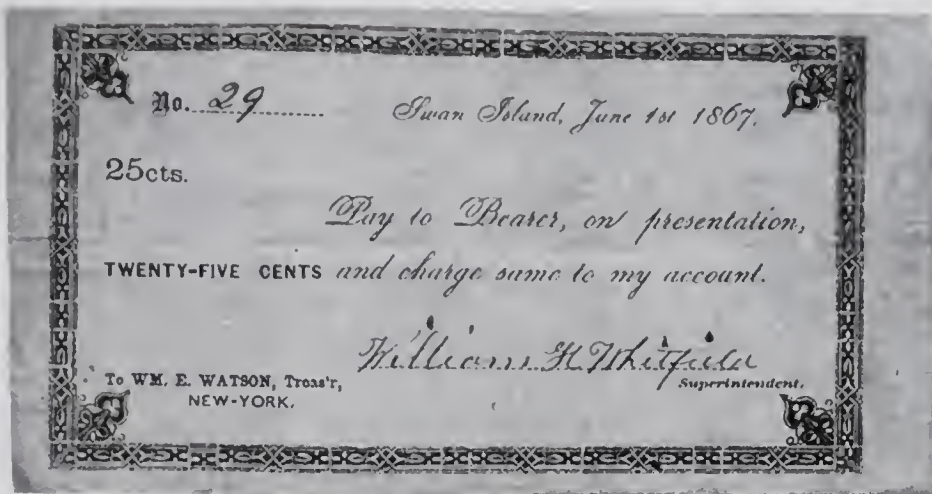 No. 29 Swan Island, June 1st 1867.
25cts.
Pay to Bearer, on presentation,
TWENTY-FIVE CENTS and charge same to my account.
William H Whitfield
Superintendent.
To WM. E. WATSON, Treas'r,
NEW-YORK.